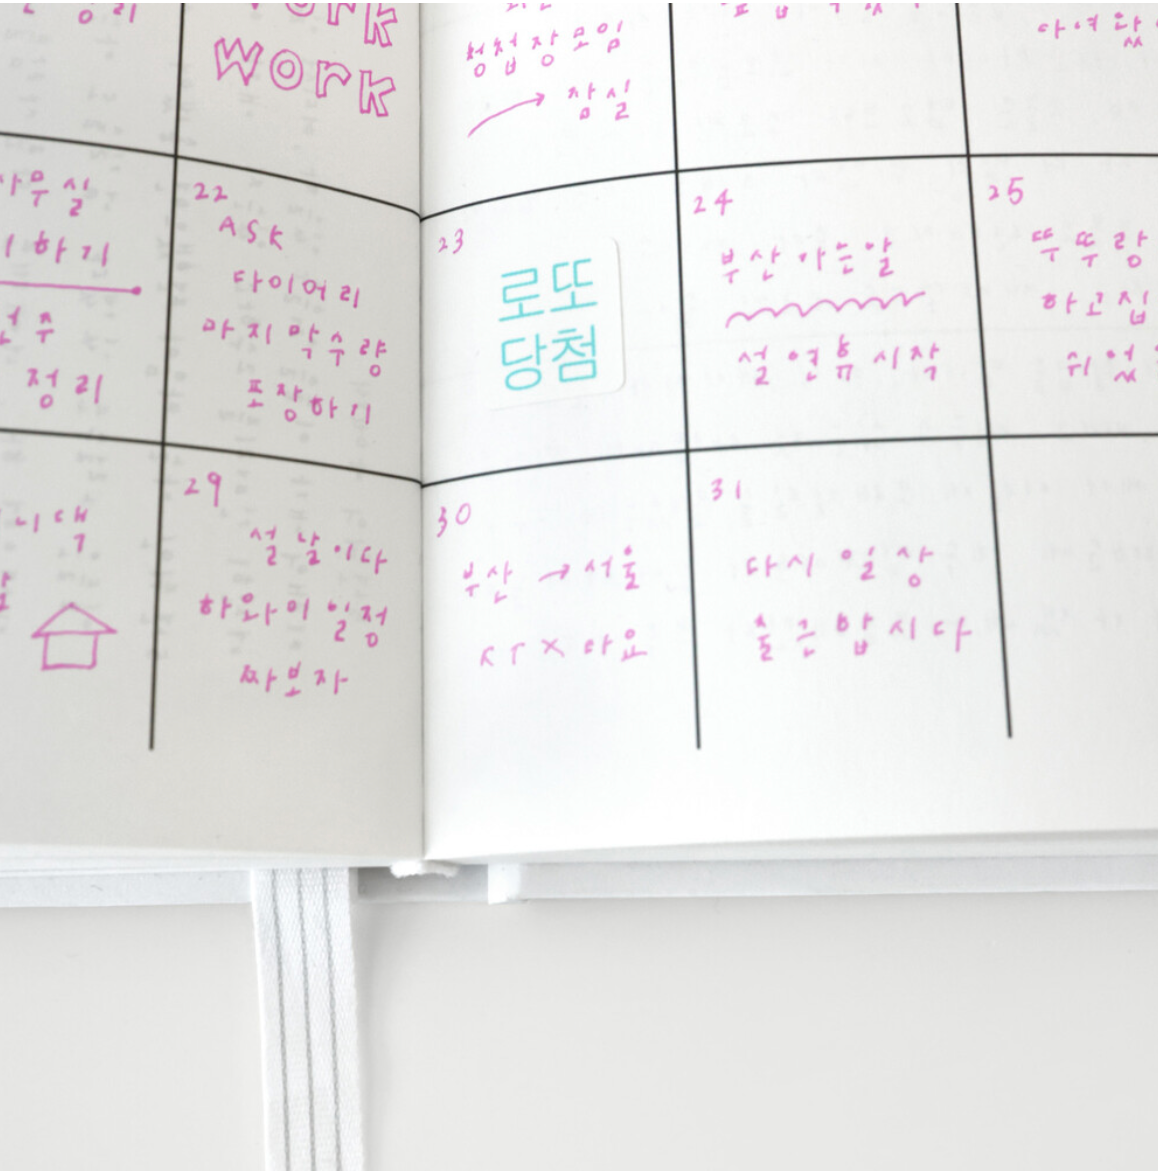 WORK
청첩장모임
→ 잠실
사무실
하기
정리
22
ASK
다이어리
마지막수량
포장하기
23
로또
당첨
24
부산가는날
설 연휴 시작
25
뚜뚜랑
하고집
29
설날이다
하와이 일정
짜보자
30
부산 → 서울
KTX 타요
31
다시 일상
출근합시다